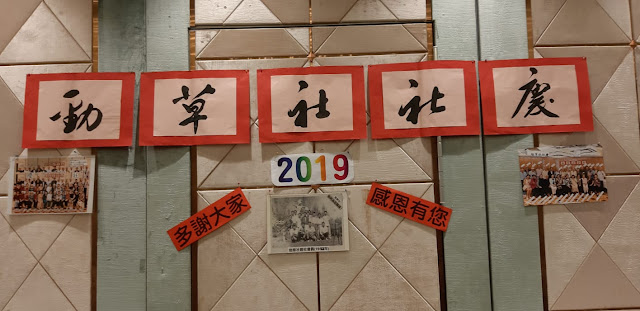 勁草社社慶
2019
多謝大家
感恩有您